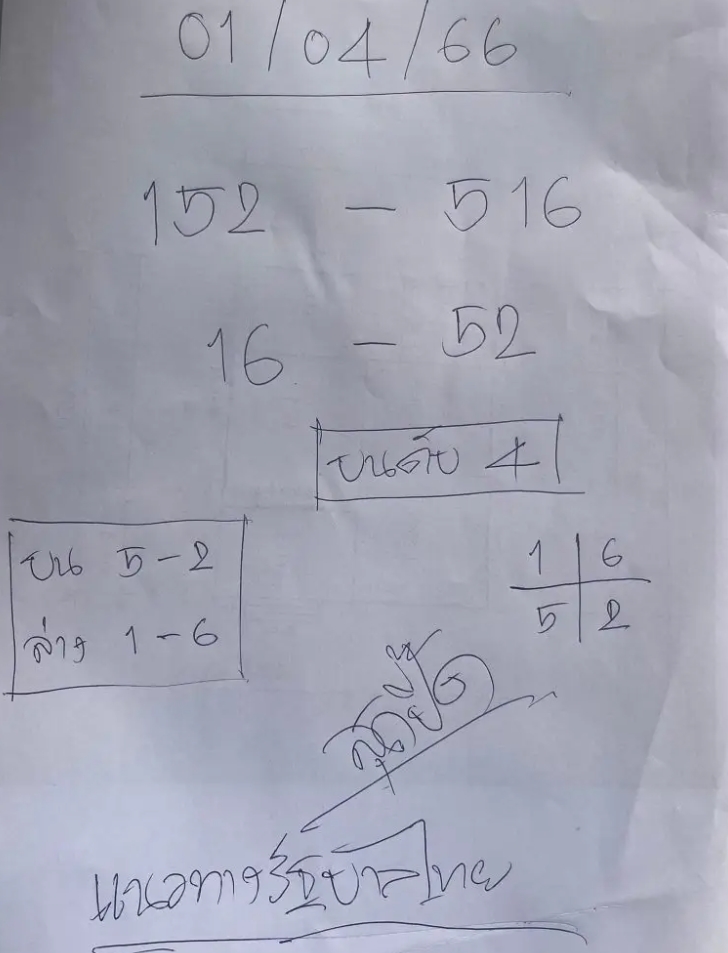 01/04/66
152 - 516
16 - 52
บนดับ 4
บน 5-2
ล่าง 1-6
1 6
5 2
แนวทางรัฐบาลไทย